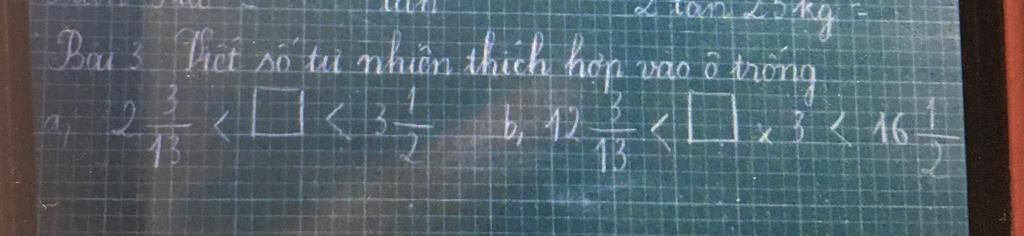 2 tấn 25kg =
Bài 3 Viết số tự nhiên thích hợp vào ô trống
a, 2 3/13 < □ < 3 1/2 b, 12 3/13 < □ x 3 < 16 1/2